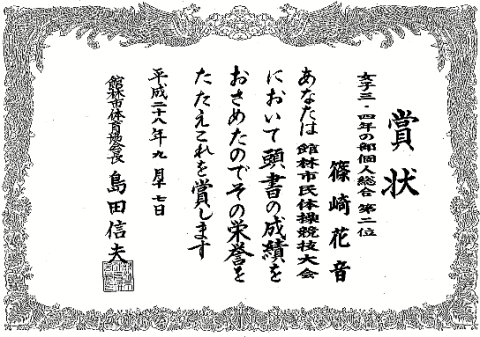 賞状
女子三・四年の部個人総合 第二位
篠崎花音
あなたは館林市民体操競技大会
において頭書の成績を
おさめたのでその栄誉を
たたえこれを賞します
平成二十八年九月十七日
館林市体育協会長 島田信夫